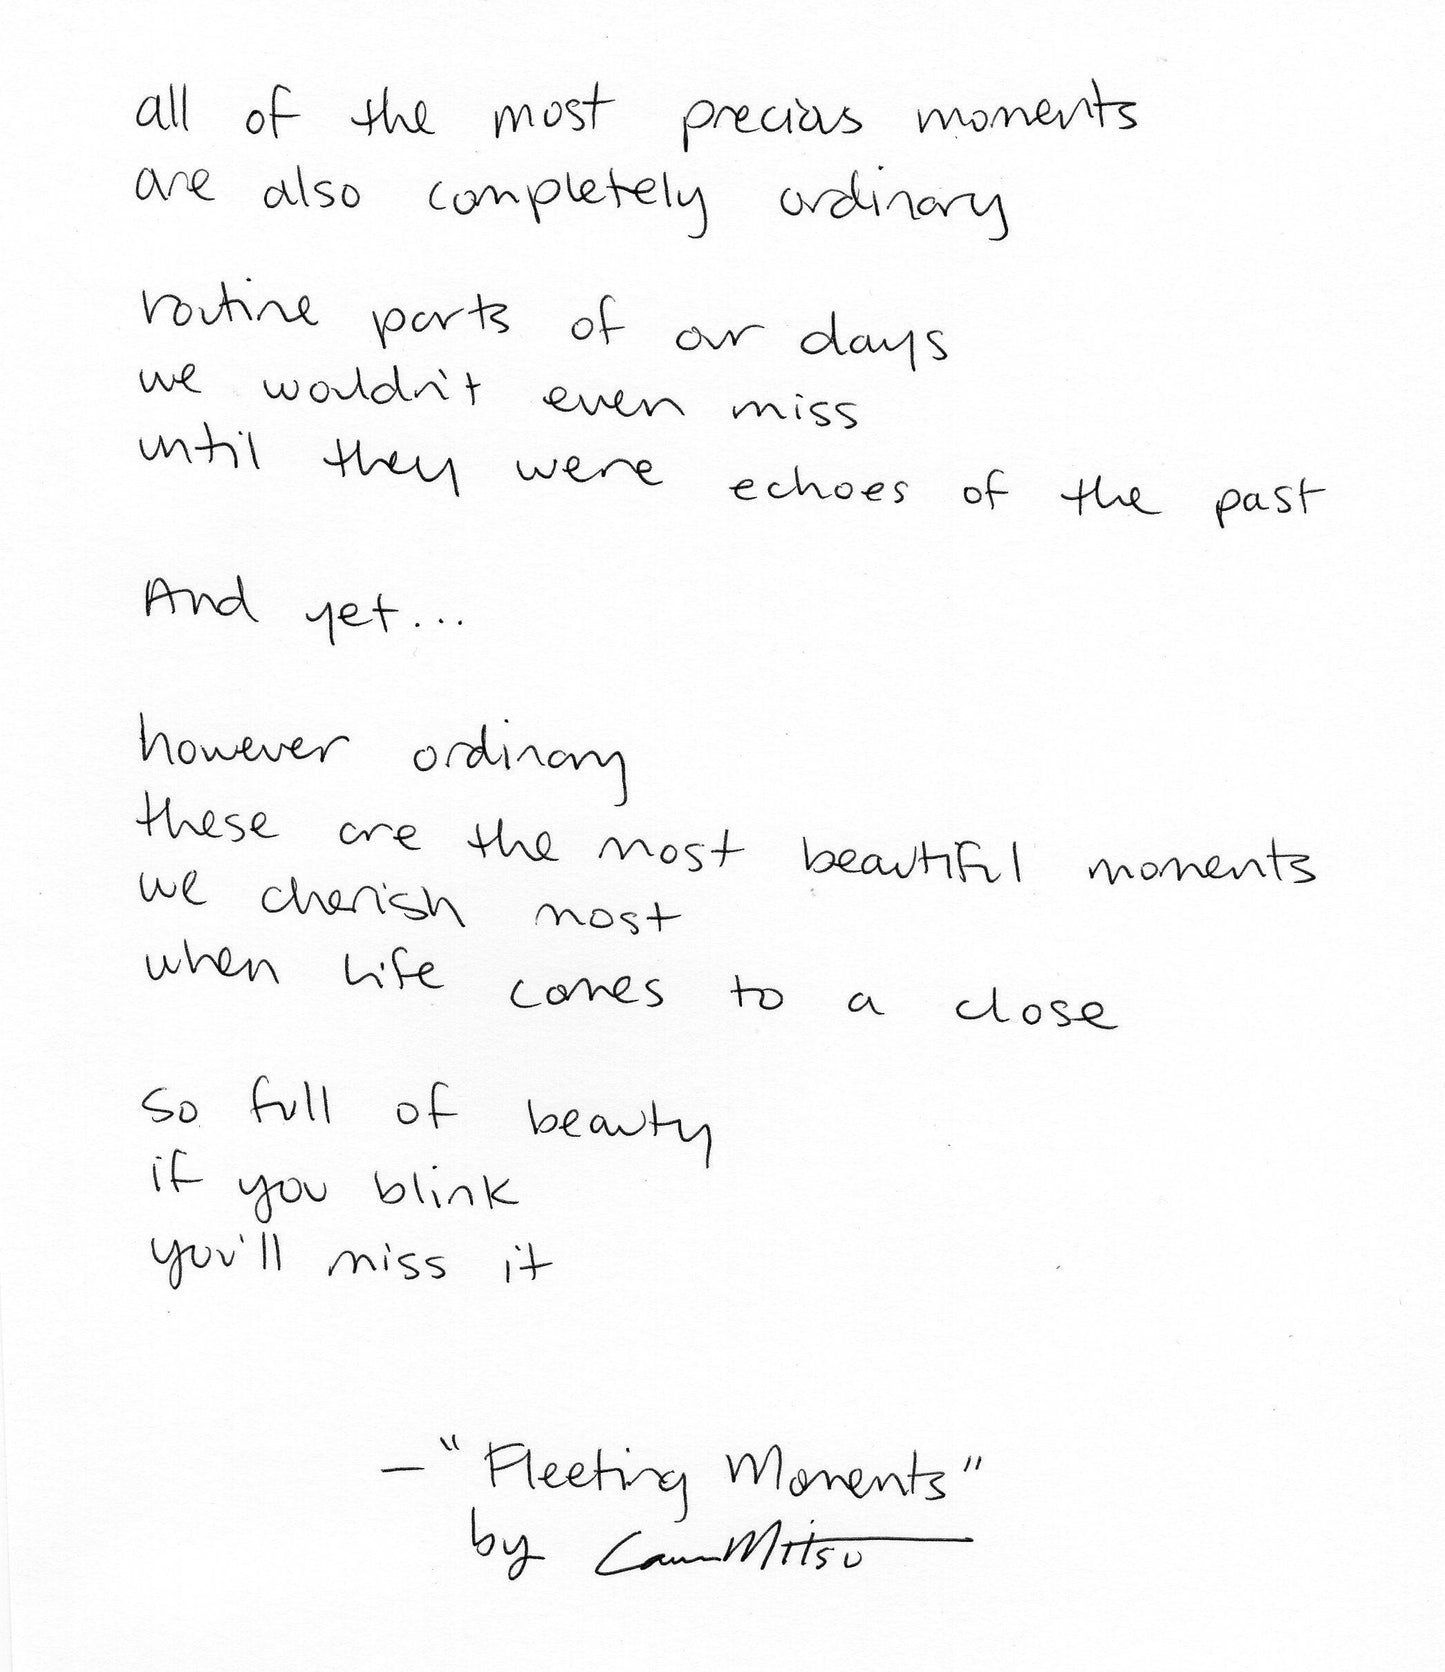 all of the most precious moments
are also completely ordinary
routine parts of our days
we wouldn't even miss
until they were echoes of the past
And yet...
however ordinary
these are the most beautiful moments
we cherish most
when life comes to a close
so full of beauty
if you blink
you'll miss it
— "Fleeting Moments"
by Mitsu